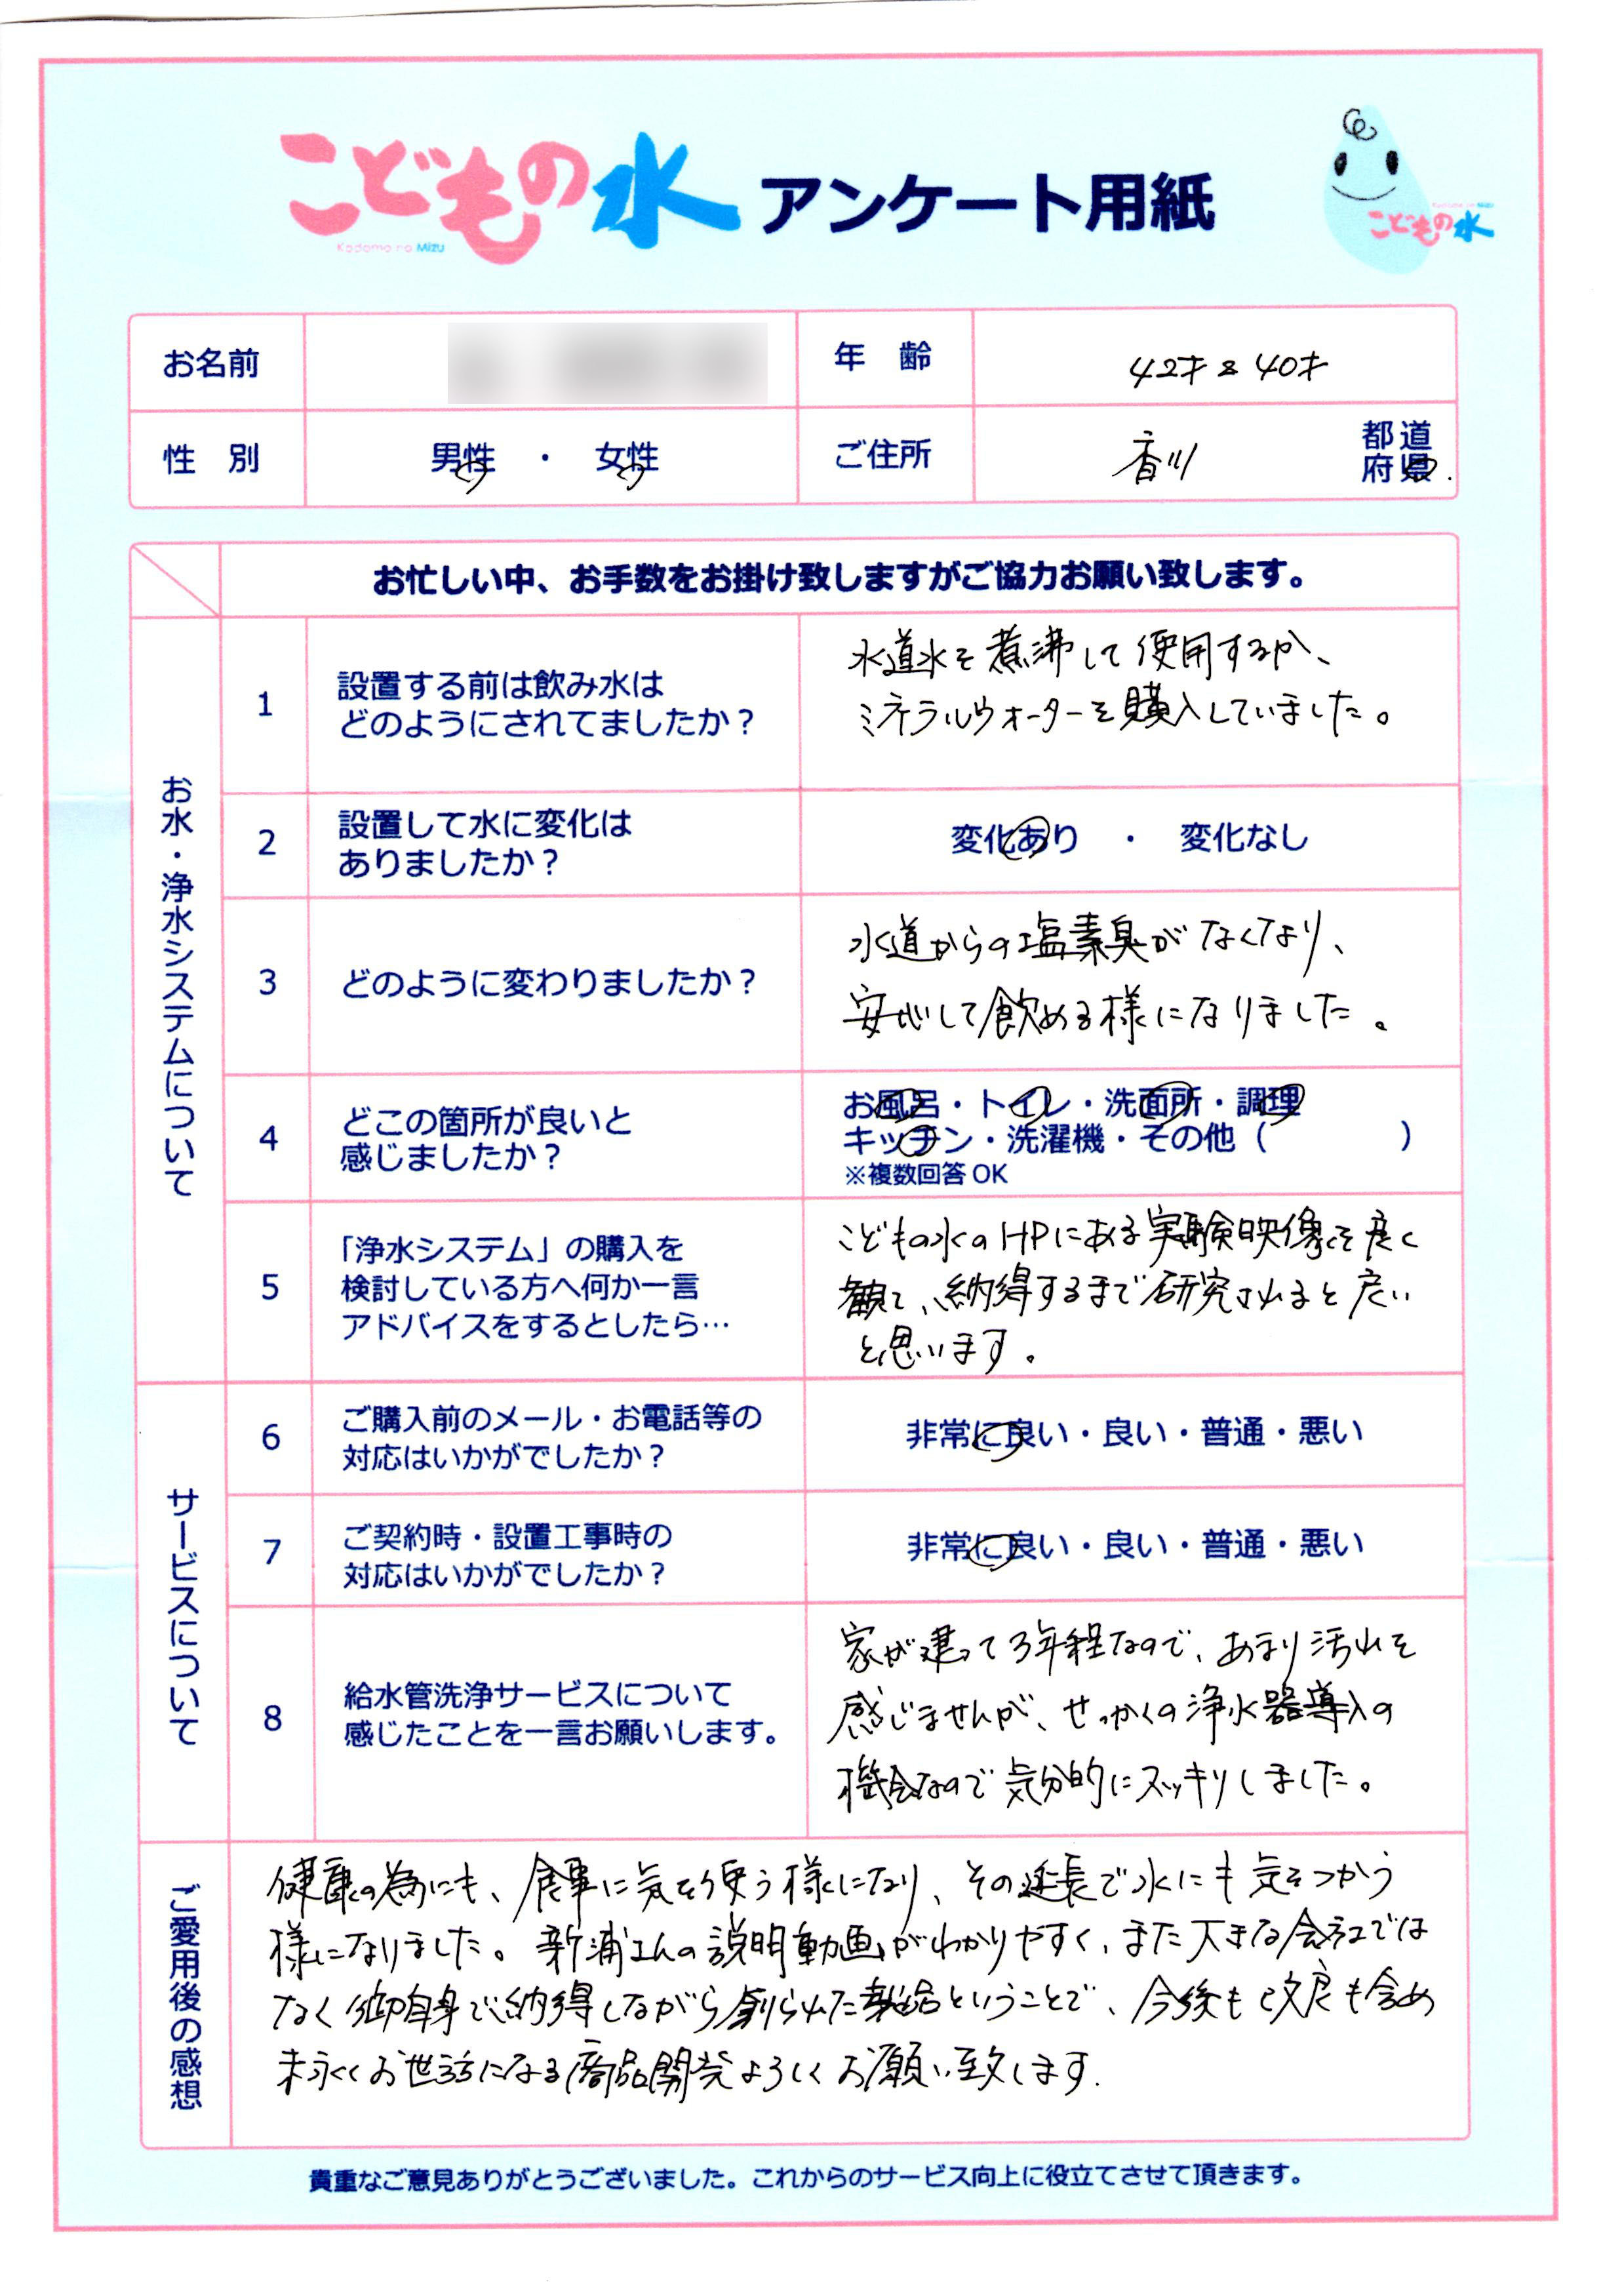 こどもの水 アンケート用紙
Kodomo no Mizu
Kodomo no Mizu
こどもの水
お名前
年 齢 42才&40才
性 別 男性 ・ 女性
ご住所 香川 都道府県
お忙しい中、お手数をお掛け致しますがご協力お願い致します。
お水・浄水システムについて
1
設置する前は飲み水は
どのようにされてましたか？
水道水を煮沸して使用するか、
ミネラルウォーターを購入していました。
2
設置して水に変化は
ありましたか？
変化あり ・ 変化なし
3
どのように変わりましたか？
水道からの塩素臭がなくなり、
安心して飲める様になりました。
4
どこの箇所が良いと
感じましたか？
お風呂・トイレ・洗面所・調理
キッチン・洗濯機・その他（ ）
※複数回答OK
5
「浄水システム」の購入を
検討している方へ何か一言
アドバイスをするとしたら…
こどもの水のHPにある実験映像を良く
観て、納得するまで研究されると良い
と思います。
サービスについて
6
ご購入前のメール・お電話等の
対応はいかがでしたか？
非常に良い・良い・普通・悪い
7
ご契約時・設置工事時の
対応はいかがでしたか？
非常に良い・良い・普通・悪い
8
給水管洗浄サービスについて
感じたことを一言お願いします。
家が建って3年程なので、あまり汚れを
感じませんが、せっかくの浄水器導入の
機会なので気分的にスッキリしました。
ご愛用後の感想
健康の為にも、食事に気を使う様になり、その延長で水にも気をつかう
様になりました。新浦さんの説明動画がわかりやすく、また大きな会社では
なく御自身で納得しながら創られた製品ということで、今後も改良も含め
末永くお世話になる商品開発よろしくお願い致します.
貴重なご意見ありがとうございました。これからのサービス向上に役立てさせて頂きます。